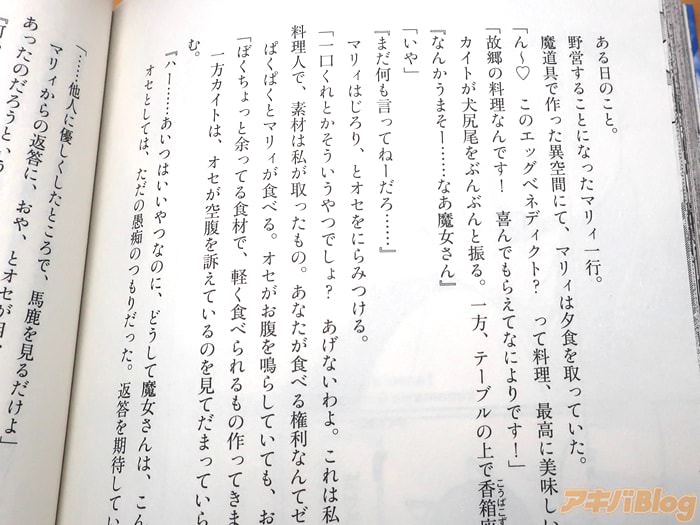 ある日のこと。
野営することになったマリィ一行。
魔道具で作った異空間にて、マリィは夕食を取っていた。
「ん～♡　このエッグベネディクト？　って料理、最高に美味しい
「故郷の料理なんです！　喜んでもらえてなによりです！」
カイトが犬尻尾をぶんぶんと振る。一方、テーブルの上で香箱座
こうばこず
『なんかうまそー……なあ魔女さん』
「いや」
『まだ何も言ってねーだろ……』
マリィはじろり、とオセをにらみつける。
「一口くれとかそういうやつでしょ？　あげないわよ。これは私
料理人で、素材は私が取ったもの。あなたが食べる権利なんてゼ
ぱくぱくとマリィが食べる。オセがお腹を鳴らしていても、お
「ぼくちょっと余ってる食材で、軽く食べられるもの作ってきま
一方カイトは、オセが空腹を訴えているのを見てだまっていら
む。
『ハー……あいつはいいやつなのに、どうして魔女さんは、こん
オセとしては、ただの愚痴のつもりだった。返答を期待してい
「……他人に優しくしたところで、馬鹿を見るだけよ」
マリィからの返答に、おや、とオセが目
あったのだろうという
アキバBlog